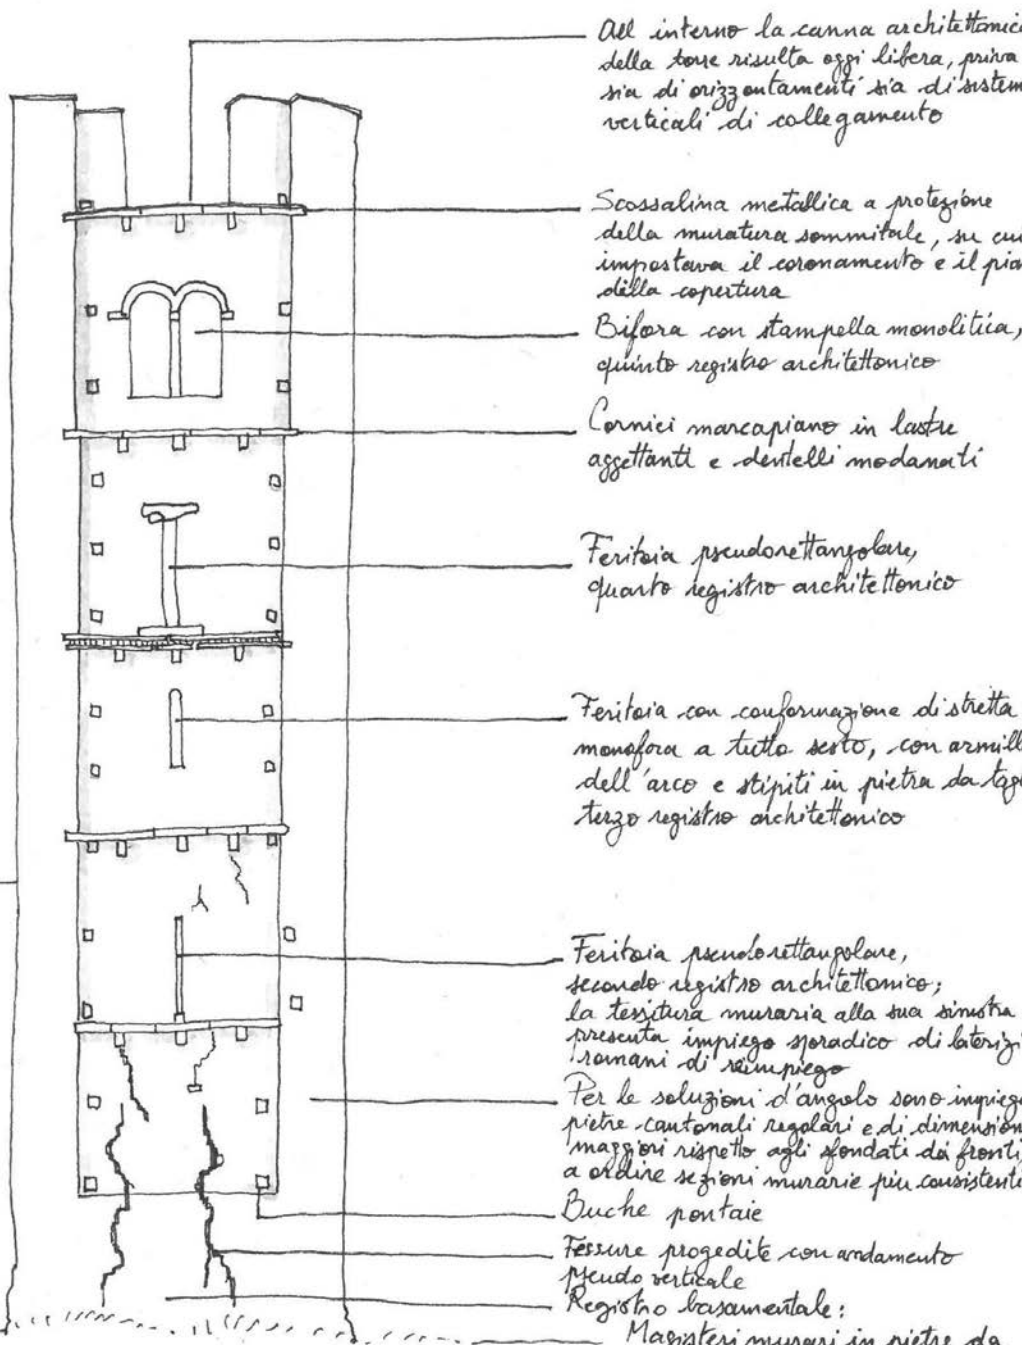 All interno la canna architettonic
della torre risulta oggi libera, priva
sia di orizzontamenti sia di sistem
verticali di collegamento
Scossalina metallica a protezione
della muratura sommitale, su cui
impostava il coronamento e il pian
della copertura
Bifora con stampella monolitica,
quinto registro architettonico
Cornici marcapiano in lastre
aggettanti e dentelli modanati
Feritoia pseudorettangolare,
quarto registro architettonico
Feritoia con conformazione di stretta
monofora a tutto sesto, con armill
dell'arco e stipiti in pietra da tagl
terzo registro architettonico
Feritoia pseudorettangolare,
secondo registro architettonico;
la tessitura muraria alla sua sinistra
presenta impiego sporadico di laterizi
romani di reimpiego
Per le soluzioni d'angolo sono impieg
pietre cantonali regolari e di dimension
maggiori rispetto agli sfondati dei fronti,
a ordire sezioni murarie più consistenti
Buche pontaie
Fessure progedite con andamento
pseudo verticale
Registro basamentale:
Magisteri murari in pietre da